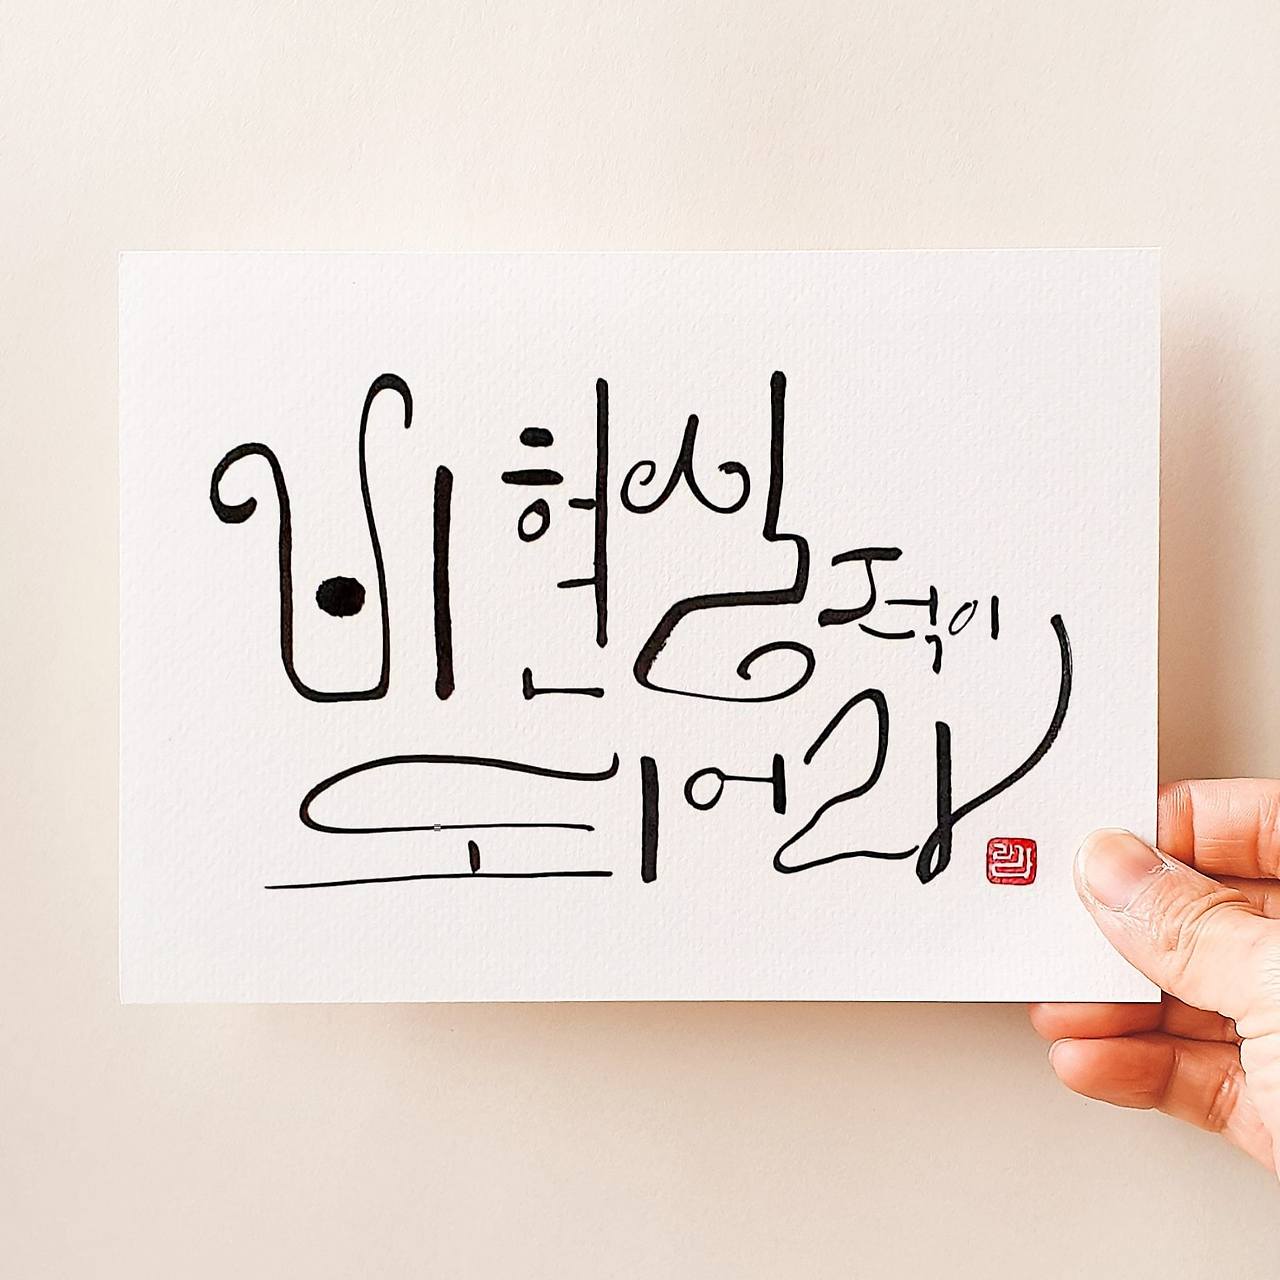 비현실적이
되어라
라